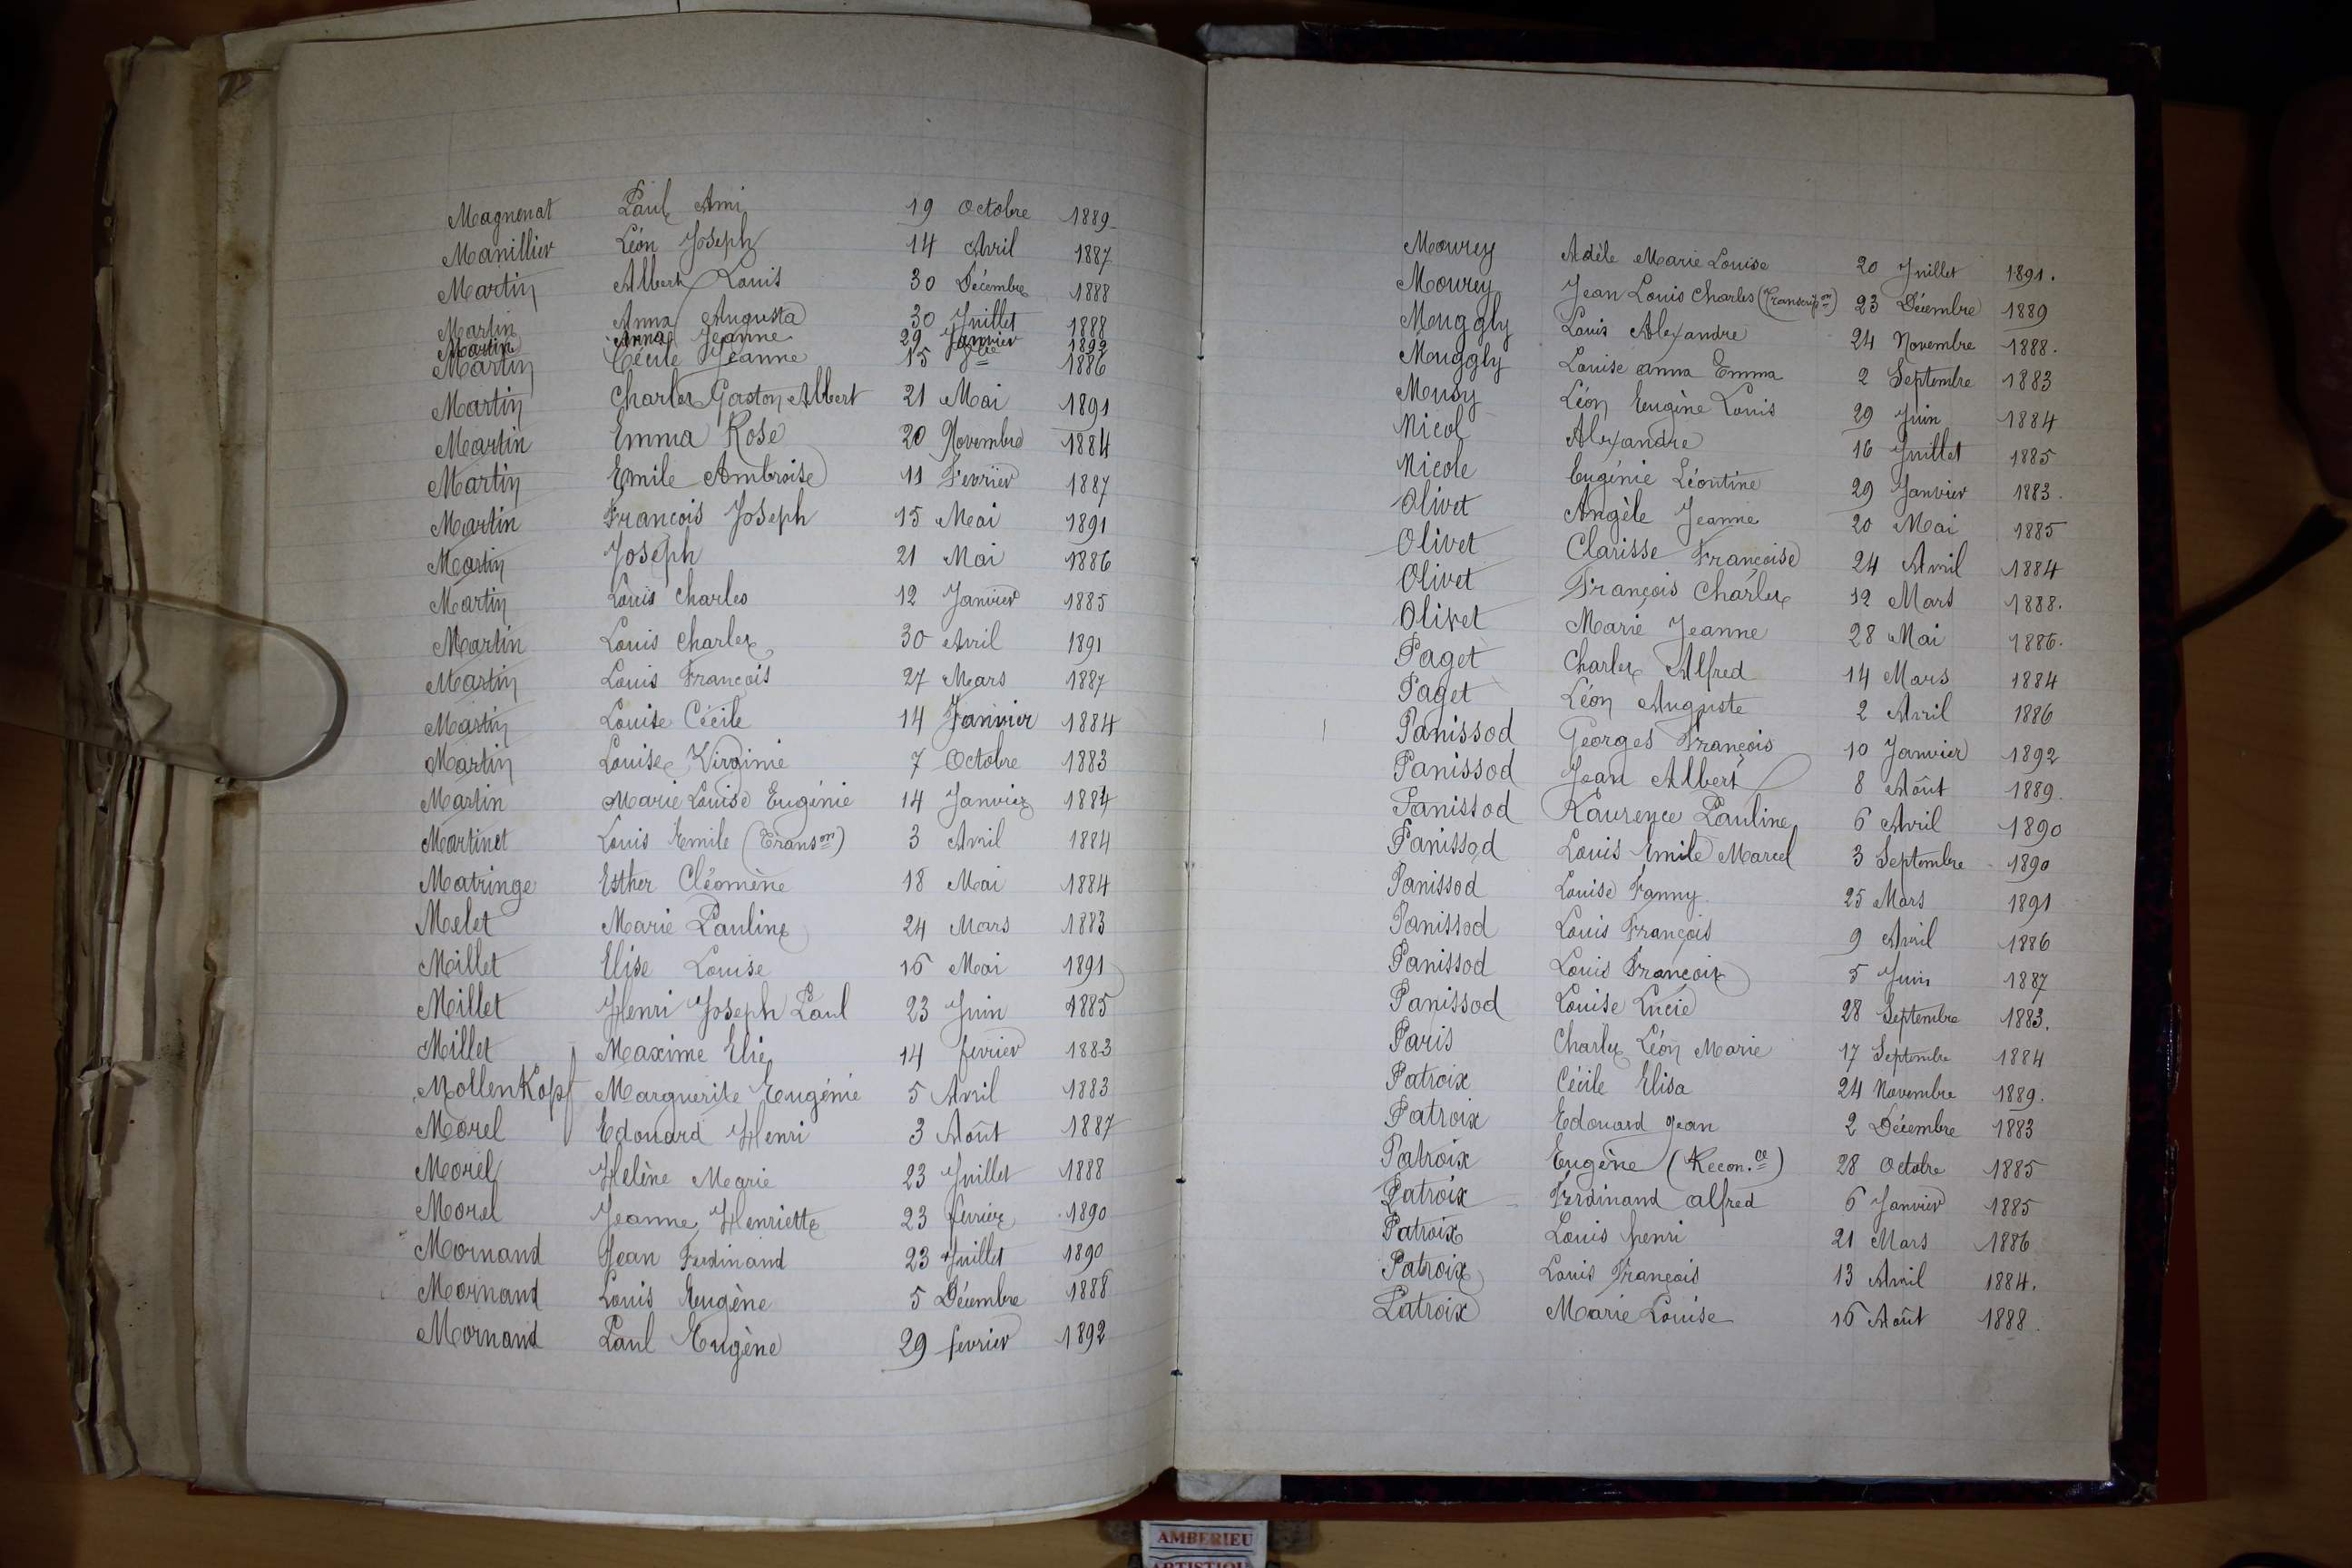 Magnenat Paul Ami 19 Octobre 1889
Manillier Léon Joseph 14 Avril 1887
Martin Albert Louis 30 Décembre 1888
Martin Anna Augusta 30 Juillet 1888
Martin Anna Jeanne 29 Janvier 1892
Martin Cécile Jeanne 15 1886
Martin Charles Gaston Albert 21 Mai 1891
Martin Emma Rose 20 Novembre 1884
Martin Emile Ambroise 11 Février 1887
Martin François Joseph 15 Mai 1891
Martin Joseph 21 Mai 1886
Martin Louis Charles 12 Janvier 1885
Martin Louis Charles 30 Avril 1891
Martin Louis François 27 Mars 1887
Martin Louise Cécile 14 Janvier 1884
Martin Louise Virginie 7 Octobre 1883
Martin Marie Louise Eugénie 14 Janvier 1884
Martinet Louis Emile (Transon) 3 Avril 1884
Matringe Esther Cléomène 18 Mai 1884
Melet Marie Pauline 24 Mars 1883
Millet Elise Louise 16 Mai 1891
Millet Henri Joseph Paul 23 Juin 1885
Millet Maxime Elie 14 fevrier 1883
MollenKopf Marguerite Eugénie 5 Avril 1883
Morel Edouard Henri 3 Août 1887
Morel Helène Marie 23 Juillet 1888
Morel Jeanne Henriette 23 fevrier 1890
Mornand Jean Ferdinand 23 Juillet 1890
Mornand Louis Eugène 5 Décembre 1888
Mornand Paul Eugène 29 fevrier 1892
Mourey Adèle Marie Louise 20 Juillet 1891.
Mourey Jean Louis Charles (Transcripon) 23 Décembre 1889
Mouggly Louis Alexandre 24 Novembre 1888.
Mouggly Louise anna Emma 2 Septembre 1883
Musy Léon Eugène Louis 29 Juin 1884
Nicol Alexandre 16 Juillet 1885
Nicole Eugénie Léontine 29 Janvier 1883.
Olivet Angèle Jeanne 20 Mai 1885
Olivet Clarisse Françoise 24 Avril 1884
Olivet François Charles 12 Mars 1888.
Olivet Marie Jeanne 28 Mai 1886.
Paget Charles Alfred 14 Mars 1884
Paget Léon Auguste 2 Avril 1886
Panissod Georges François 10 Janvier 1892
Panissod Jean Albert 8 Août 1889.
Panissod Laurence Pauline 6 Avril 1890
Panissod Louis Emile Marcel 3 Septembre 1890
Panissod Louise Fanny 25 Mars 1891
Panissod Louis François 9 Avril 1886
Panissod Louis François 5 Juin 1887
Panissod Louise Lucie 28 Septembre 1883.
Paris Charles Léon Marie 17 Septembre 1884
Patroix Cécile Elisa 24 Novembre 1889.
Patroix Edouard Jean 2 Décembre 1883
Patroix Eugène (Recon.ce) 28 Octobre 1885
Patroix Ferdinand alfred 6 Janvier 1885
Patroix Louis henri 21 Mars 1886
Patroix Louis François 13 Avril 1884.
Patroix Marie Louise 16 Août 1888.
AMBERIEU
ARTISTIQU